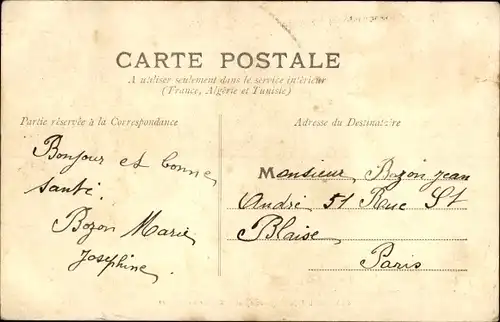 CARTE POSTALE
A utiliser seulement dans le service intérieur
(France, Algérie et Tunisie)
Partie réservée à la Correspondance
Adresse du Destinataire
Bonjour et bonne
santé.
Bozon Marie
Josephine
Monsieur Bozon jean
André 51 Rue St
Blaise
Paris